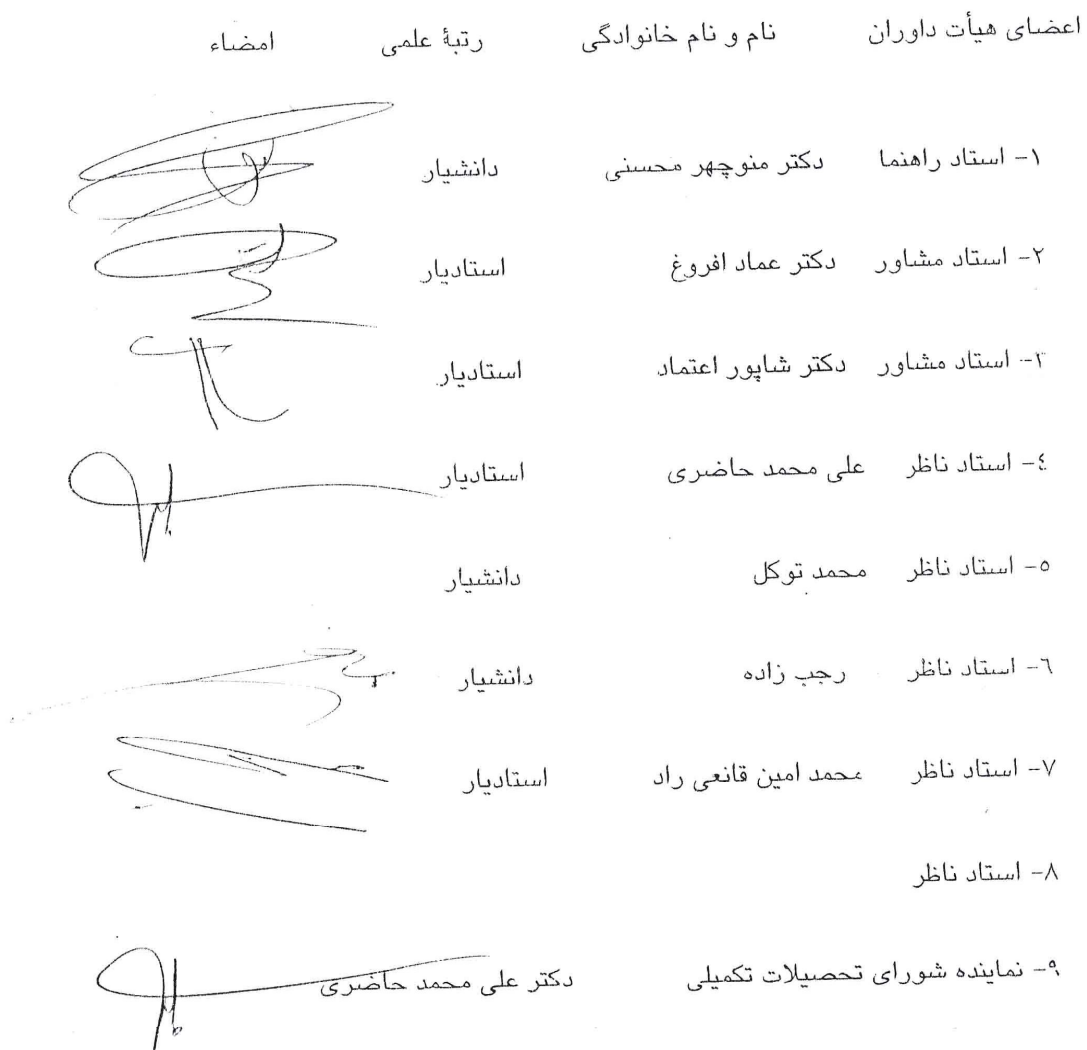 اعضای هیأت داوران نام و نام خانوادگی رتبۀ علمی امضاء
۱- استاد راهنما دکتر منوچهر محسنی دانشیار
۲- استاد مشاور دکتر عماد افروغ استادیار
۳- استاد مشاور دکتر شاپور اعتماد استادیار
٤- استاد ناظر علی محمد حاضری استادیار
٥- استاد ناظر محمد توکل دانشیار
٦- استاد ناظر رجب زاده دانشیار
۷- استاد ناظر محمد امین قانعی راد استادیار
۸- استاد ناظر
۹- نماینده شورای تحصیلات تکمیلی دکتر علی محمد حاضری